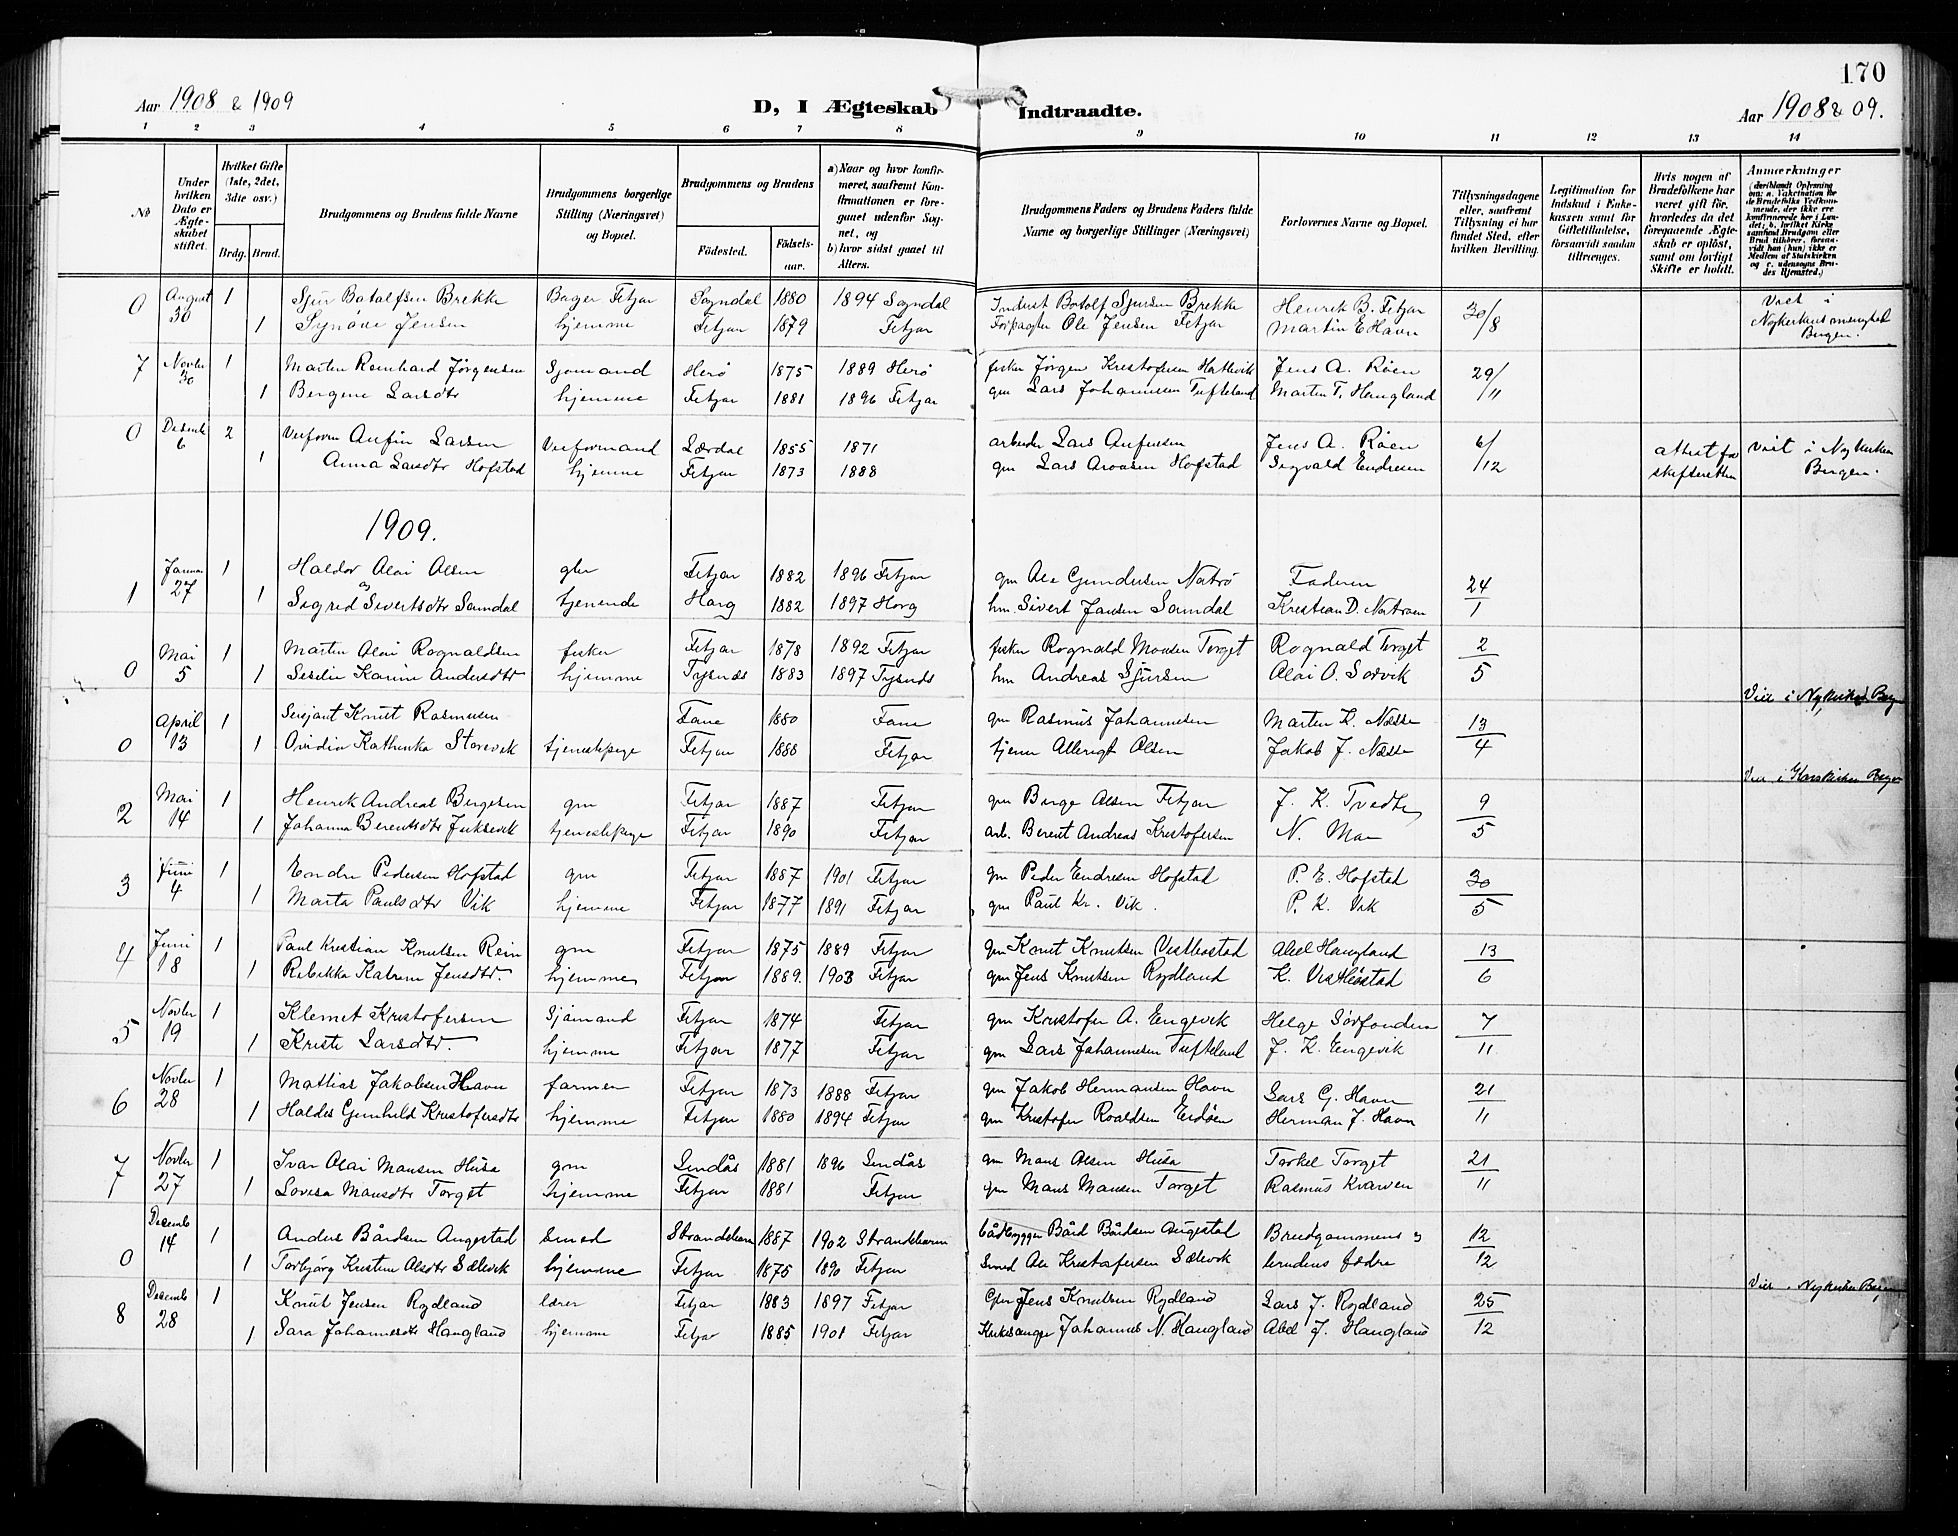 170
Aar 1908 & 1909
D, I Ægteskab Indtraadte.
Aar 1908 & 09.
1 2 3 4 5 6 7 8 9 10 11 12 13 14
No
Under hvilken Dato er Ægteskabet stiftet.
Hvilket Gifte (1ste, 2det, 3dte osv.)
Brdg. Brud.
Brudgommens og Brudens fulde Navne
Brudgommens borgerlige Stilling (Næringsvei) og Bopæl.
Brudgommens og Brudens
Fødested. Fødselsaar.
a) Naar og hvor konfirmeret, saafremt Konfirmationen er foregaaet udenfor Sognet, og b) hvor sidst gaaet til Alters.
Brudgommens Faders og Brudens Faders fulde Navne og borgerlige Stillinger (Næringsvei)
Forlovernes Navne og Bopæl.
Tillysningsdagene eller, saafremt Tillysning ei har fundet Sted, efter hvilken Bevilling.
Legitimation for Indskud i Enkekassen samt for Giftetilladelse, forsaavidt saadan tiltrænges.
Hvis nogen af Brudefolkene har været gift før, hvorledes da det foregaaende Ægteskab er opløst, samt om lovligt Skifte er holdt.
Anmærkninger
(deriblandt Oplysning om: a. Vakcination for de Brudefolks Vedkommende, der ikke ere konfirmerede her i Landet; b. hvilket Kirkesamfund Brudgom eller Brud tilhører, forsaavidt han (hun) ikke er Medlem af Statskirken og c. udensogns Brudes Hjemsted.)
0 August 30 1 Sjur Botolfsen Brekke Bager Fitjar Sogndal 1880 1894 Sogndal Indust Botolf Sjursen Brekke Henrik B. Fitjar 30/8 Viet i Nykirkens menighed Bergen.
1 Synøve Jensen hjemme Fitjar 1879 Fitjar Forpagter Ole Jensen Fitjar Martin E Havn
7 Novbr 30 1 Martin Reinhard Jørgensen Sjømand Herø 1875 1889 Herø fisker Jørgen Kristofersen Hatlevik Jens A. Røen 29/11
1 Bergine Larsdtr hjemme Fitjar 1881 1896 Fitjar gm Lars Johannesen Tufteland Marten T. Haugland
0 Desemb 6 2 Verform Anfin Larsen Verformand Lærdal 1855 1871 arbeider Lars Anfinsen Jens A. Røen 6/12 attest fra skifteretten viet i Nykirken Bergen.
1 Anna Larsdtr Hofstad hjemme Fitjar 1873 1888 gm Lars Aroasen Hofstad Sigvald Endresen
1909.
1 Januar 27 1 Haldor Olai Olsen gbr Fitjar 1882 1896 Fitjar gm Ole Gundersen Natrø Faderen 24/1
og
1 Sigrid Sivertsdtr Samdal tjenende Horg 1882 1897 Horg hm. Sivert Jansen Samdal Kristian D. Nortraen
0 Mai 5 1 Martin Olai Rognaldsen fisker Fitjar 1878 1892 Fitjar fisker Rognald Monsen Torget Rognald Torget 2/5
1 Sesilie Karine Andersdtr hjemme Tysnes 1883 1897 Tysnes hm Andreas Sjursen Olai O. Sørvik
0 April 13 1 Serjant Knut Rasmusen Fane 1880 Fane gm Rasmus Johannesen Marten K. Næsse 13/4 Viet i Nykirken Berg
1 Ovidia Kathinka Storevik tjenestepige Fitjar 1888 Fitjar tjener Allerigt Olsen Jakob J. Næsse
2 Mai 14 1 Henrik Andreas Bergesen gm Fitjar 1887 Fitjar gm Berge Olsen Fitjar J. K. Tvedte 9/5 Viet i Korskirken Bergen
1 Johanna Berentsdtr Juksevik tjenestepige Fitjar 1890 Fitjar arb. Berent Andreas Kristofersen N. Mæ
3 Juni 4 1 Endre Pedersen Hofstad gm Fitjar 1887 1901 Fitjar gm Peder Endresen Hofstad P. E. Hofstad 30/5
1 Marta Paulsdtr Vik hjemme Fitjar 1877 1891 Fitjar gm Paul Kr. Vik. P. K. Vik
4 Juni 18 1 Paul Kristian Knutsen Rein gm Fitjar 1875 1889 Fitjar gm Knut Knutsen Vestbøstad Abel Haugland 13/6
1 Rebekka Katrine Jensdtr. hjemme Fitjar 1889. 1903 Fitjar gm Jens Knutsen Rydland K. Vestbøstad
5 Novbr 19 1 Klemet Kristofersen Sjømand Fitjar 1874 Fitjar gm Kristofer A. Engevik Helge Sørfonden 7/11
1 Kristi Larsdtr. hjemme Fitjar 1877 Fitjar gm Lars Johannesen Tufteland J. K. Engevik
6 Novbr 28 1 Mathias Jakobsen Havn farmer Fitjar 1873 1888 Fitjar gm Jakob Hermansen Havn Lars G. Havn 21/11
1 Haldis Gunhild Kristofersdtr hjemme Fitjar 1880 1894 Fitjar gm Kristofer Roaldsen Eidøen Herman J. Havn
7 Novbr 27 1 Ivar Olai Mansen Husa gm Lindås 1881 1896 Lindås gm Mans Olsen Husa Torkel Torget 21/11
1 Lovisa Mansdtr Torget hjemme Fitjar 1881 Fitjar gm Mans Mansen Torget Rasmus Kvarven
0 Desemb 14 1 Anders Bårdsen Augestad smed Strandebarm 1887 1902 Strandebarm båtbygger Bård Bårdsen Augestad Brudgommens og 12/12
1 Torbjørg Kristine Olsdtr Sælevik hjemme Fitjar 1875 1890 Fitjar Smed Ole Kristofersen Sælevik brudens fædre
8 Desemb 28 1 Knut Jensen Rydland lærer Fitjar 1883 1897 Fitjar Jens Knutsen Rydland Lars J. Rydland 25/12 Viet i Nykirken Bergen
1 Sara Johannesdtr Haugland hjemme Fitjar 1885 1901 Fitjar Kirkesanger Johannes N. Haugland Abel J. Haugland